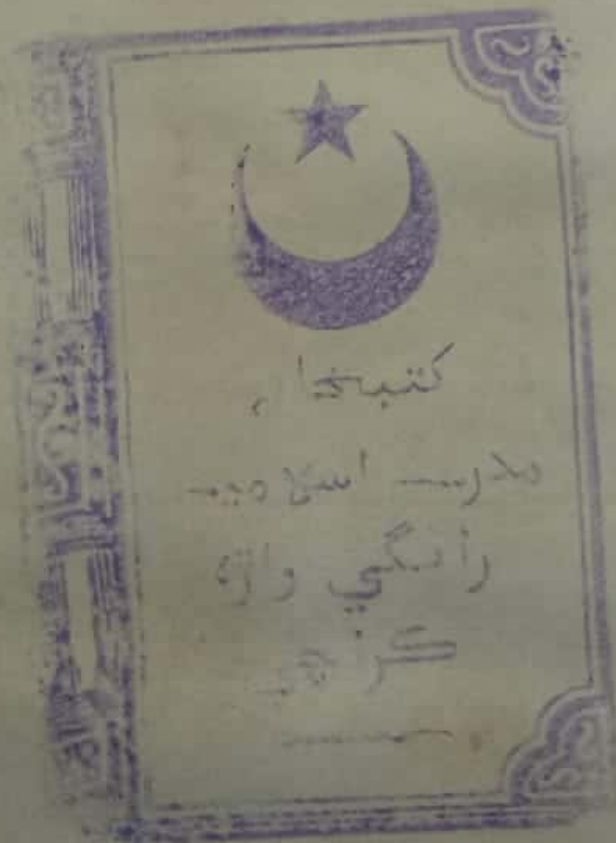 كتبخانہ
مدرسہ اسلامیہ
رانگي واڑہ
كراچی